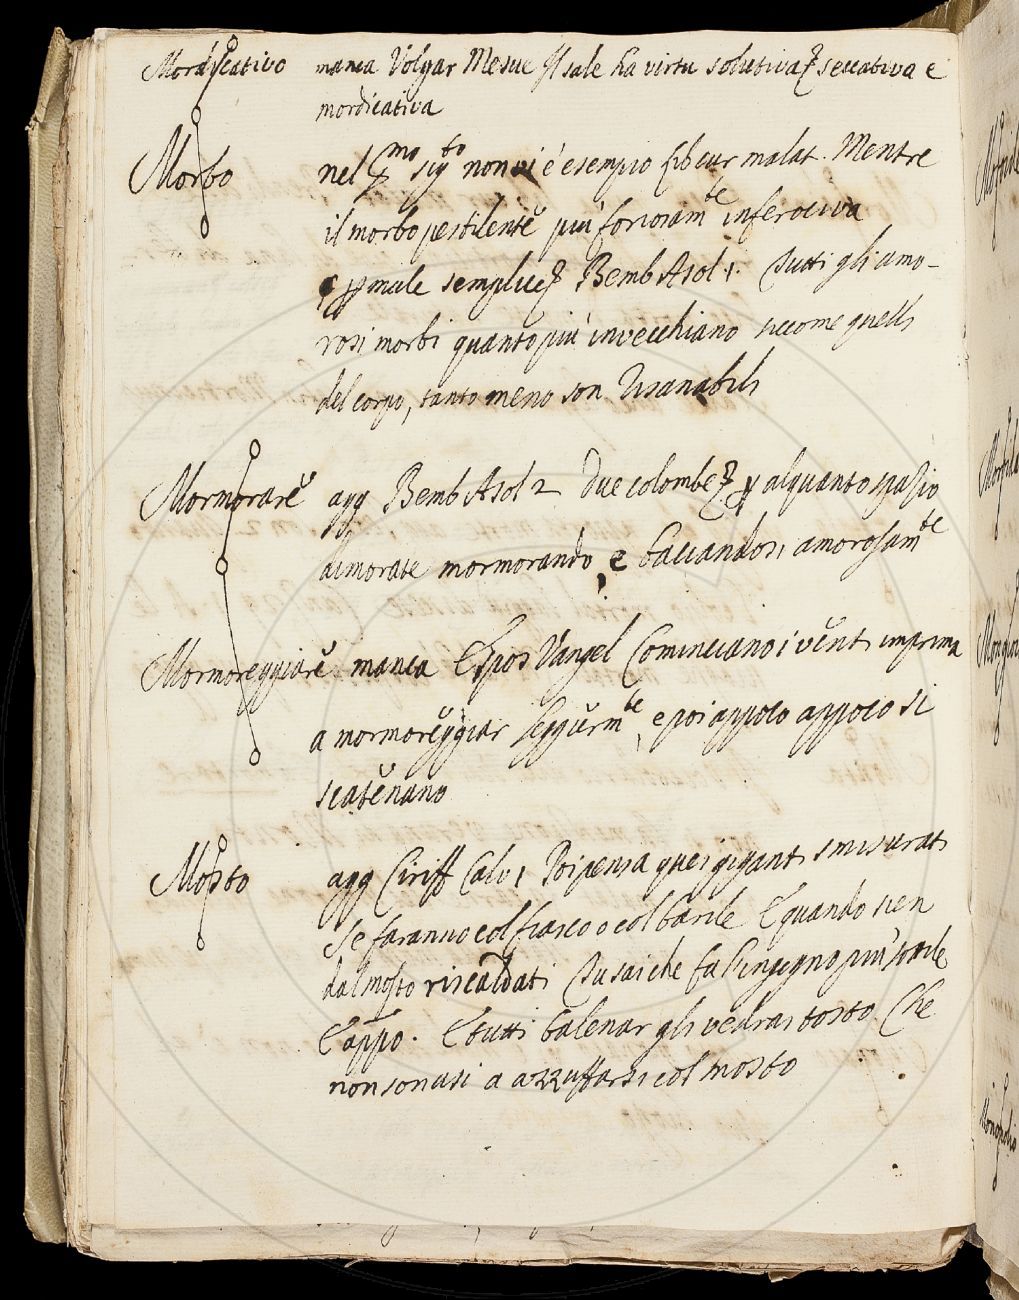 Mordicativo manca Volgar Mesue Il sale ha virtu solutiva e seccativa e
mordicativa
Morbo nel pmo sigto non vi è esempio Lib cur malat. Mentre
il morbo pestilente più foriosamte inferociva
p male semplice Bemb Asol 1. Tutti gli amo-
rosi morbi quanto più invecchiano siccome quelli
del corpo, tanto meno son risanabili
Mormorare agg Bemb Asol 2 Due colombe p alquanto spazio
dimorate mormorando, e baciandosi amorosamte
Mormoreggiare manca Espos Vangel Cominciano i venti imprima
a mormoreggiar leggiermte, e poi appoco appoco si
scatenano
Mosto agg Ciriff Calv 1 Poi pensa quei giganti smisurati
Se faranno col fiasco o col barile E quando sien
dal mosto riscaldati Tu sai che fa l'ingegno più sottile
E appo. E tutti balenar gli vedrai tosto Che
non son usi a azzuffarsi col mosto